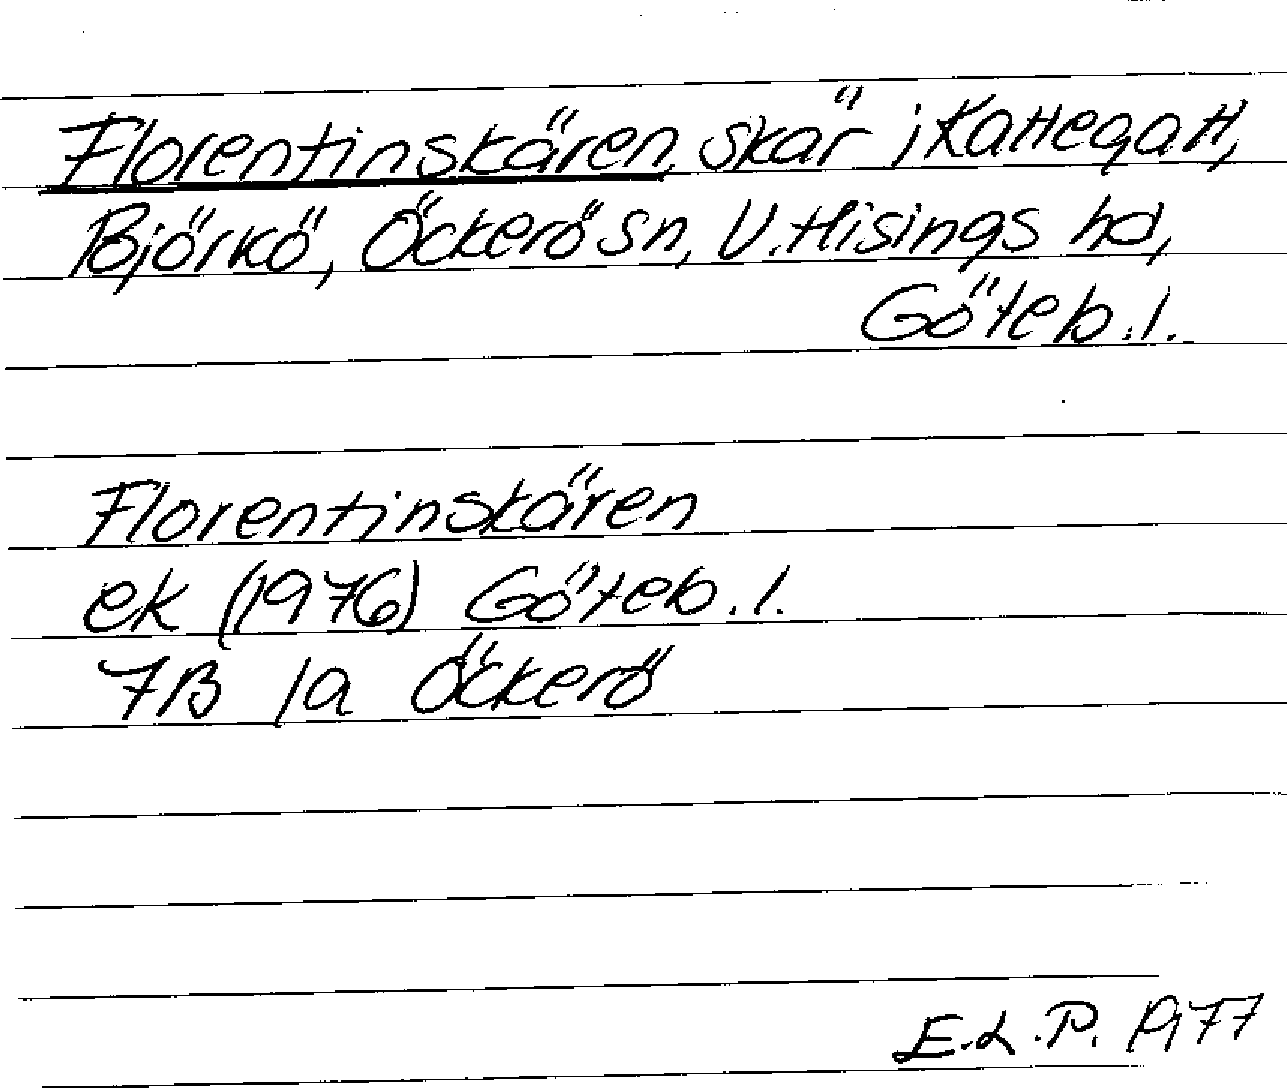 Florentinskären, skär i Kattegatt,
Björkö, Öckerö sn, V. Hisings hd,
Göteb. l.
Florentinskären
ek (1976) Göteb. l.
7B 1a Öckerö
E.L.P. 1977